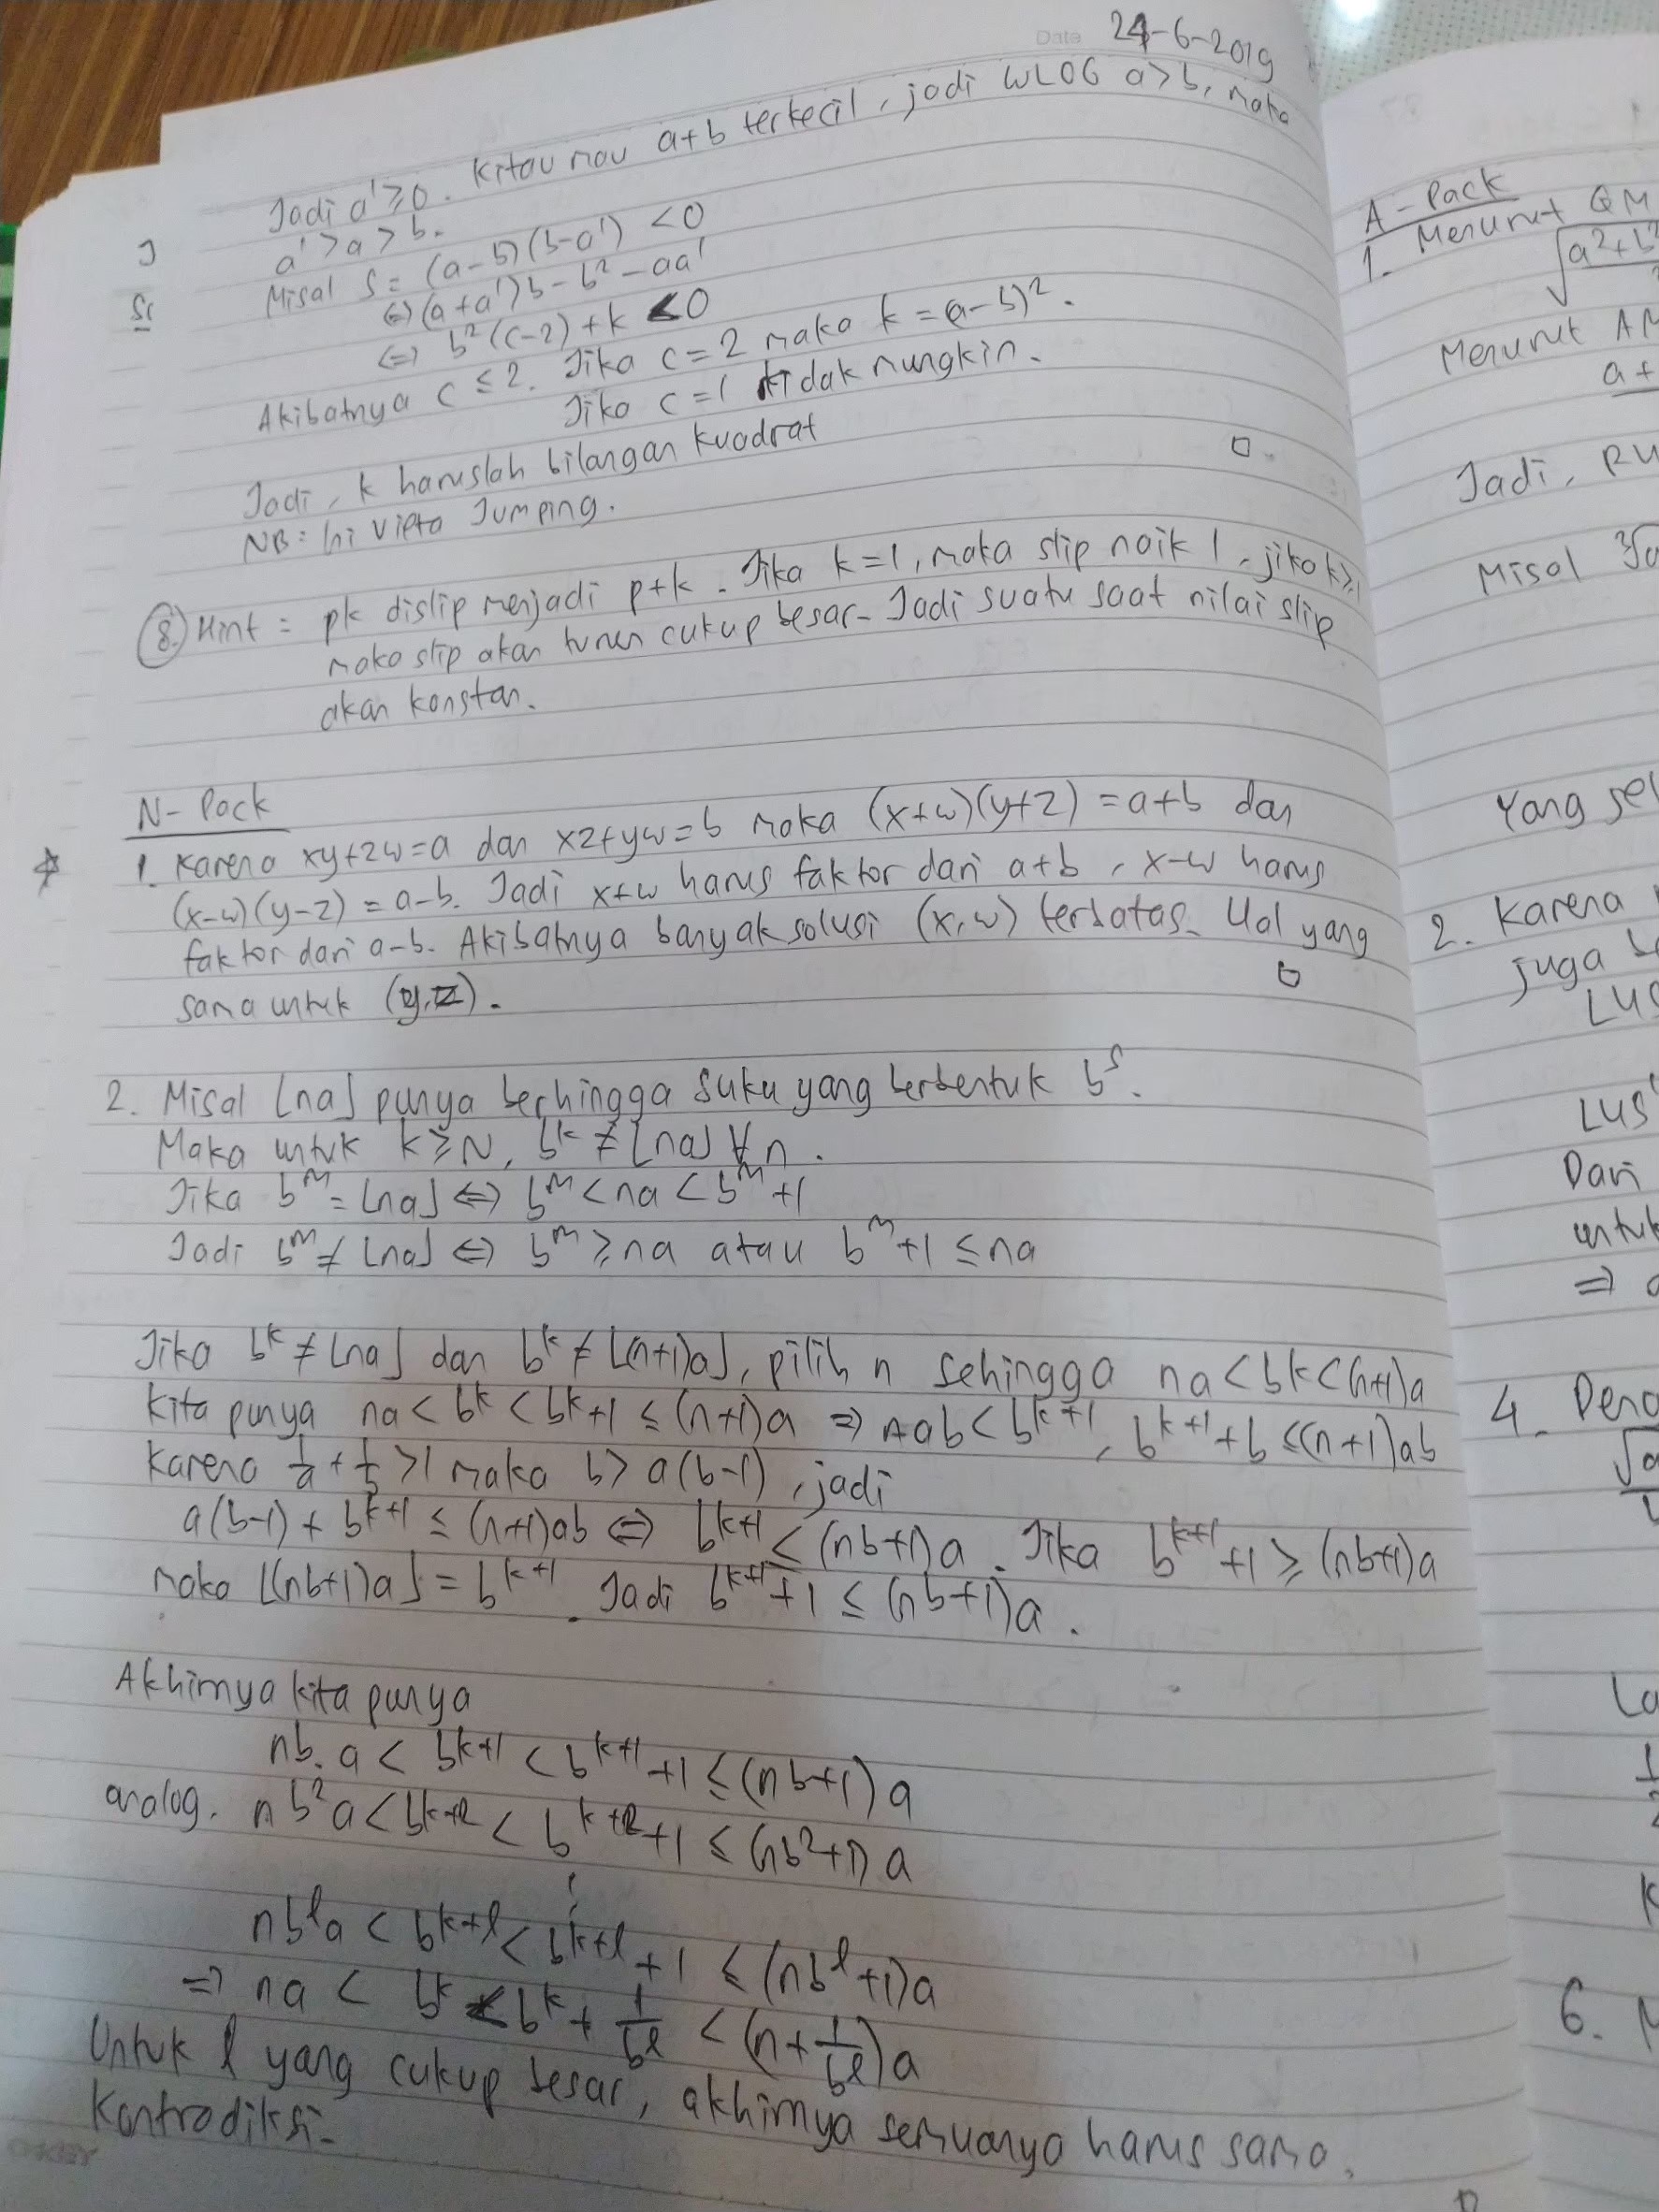 Date 24-6-2019
Jadi a' ≥ 0. Kitau mau a+b terkecil, jadi WLOG a > b, maka
a' > a > b.
Misal S = (a-b)(b-a') < 0
⇔ (a+a')b - b² - aa'
⇔ b²(c-2) + k < 0
Akibatnya c ≤ 2. Jika c = 2 maka k = (a-b)².
Jika c = 1 tidak mungkin.
Jadi, k haruslah bilangan kuadrat □.
NB: Ini Vieta Jumping.
8. Hint = pk dislip menjadi p+k. Jika k=1, maka slip naik 1, jika k≥1
maka slip akan turun cukup besar. Jadi suatu saat nilai slip
akan konstan.
N-Pack
1. Karena xy+zw=a dan xz+yw=b maka (x+w)(y+z) = a+b dan
(x-w)(y-z) = a-b. Jadi x+w harus faktor dari a+b, x-w harus
faktor dari a-b. Akibatnya banyak solusi (x,w) terbatas. Hal yang
sama untuk (y,z). □
2. Misal ⌊na⌋ punya berhingga suku yang berbentuk bˢ.
Maka untuk k ≥ N, bᵏ ≠ ⌊na⌋ ∀ n.
Jika bᵐ = ⌊na⌋ ⇔ bᵐ < na < bᵐ+1
Jadi bᵐ ≠ ⌊na⌋ ⇔ bᵐ ≥ na atau bᵐ+1 ≤ na
Jika bᵏ ≠ ⌊na⌋ dan bᵏ ≠ ⌊(n+1)a⌋, pilih n sehingga na < bᵏ < (n+1)a
Kita punya na < bᵏ < bᵏ+1 ≤ (n+1)a ⇒ nab < bᵏ⁺¹, bᵏ⁺¹+b ≤ (n+1)ab
Karena 1/a + 1/b > 1 maka b > a(b-1), jadi
a(b-1) + bᵏ⁺¹ ≤ (n+1)ab ⇔ bᵏ⁺¹ < (nb+1)a. Jika bᵏ⁺¹+1 ≥ (nb+1)a
maka ⌊(nb+1)a⌋ = bᵏ⁺¹. Jadi bᵏ⁺¹+1 ≤ (nb+1)a.
Akhirnya kita punya
nb.a < bᵏ⁺¹ < bᵏ⁺¹+1 ≤ (nb+1)a
analog. nb²a < bᵏ⁺² < bᵏ⁺²+1 ≤ (nb²+1)a
⋮
nbˡa < bᵏ⁺ˡ < bᵏ⁺ˡ+1 ≤ (nbˡ+1)a
⇒ na < bᵏ < bᵏ + 1/bˡ < (n + 1/bˡ)a
Untuk l yang cukup besar, akhirnya semuanya harus sama.
Kontradiksi. □
A-Pack
1. Menurut QM
√a²+b²
Menurut AM
a+
Jadi,
Misal ³√
Yang
2. Karena
juga
LUS
LUS
Dari
untuk
⇒
4.
6.